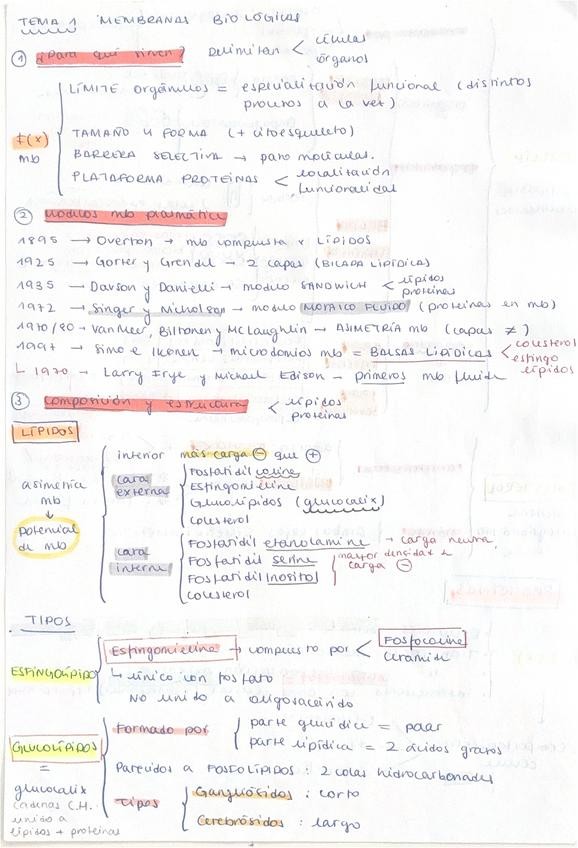 TEMA 1 MEMBRANAS BIOLÓGICAS
① ¿Para qué sirven? Delimitan < células
órganos
LÍMITE orgánulos = especialización funcional (distintos
procesos a la vez)
F(x) TAMAÑO Y FORMA (+ citoesqueleto)
mb BARRERA SELECTIVA → paso moléculas.
PLATAFORMA PROTEINAS < localización
funcionalidad
② Modelos mb plasmática
1895 → Overton → mb compuesta x LÍPIDOS
1925 → Gorter y Grendel → 2 capas (BICAPA LIPÍDICA)
1935 → Davson y Danielli → modelo SANDWICH < lípidos
proteínas
1972 → Singer y Nicholson → modelo MOSAICO FLUIDO (proteínas en mb)
1970/80 → Van Meer, Billonen y McLaughlin → ASIMETRÍA mb (capas ≠)
1997 → Simo e Ikonen → microdomios mb = BALSAS LIPÍDICAS < colesterol
esfingo
lípidos
↳ 1970 → Larry Frye y Michael Edison → primeros mb fluida
③ Composición y estructura < lípidos
proteínas
LÍPIDOS
interior más carga ⊖ que ⊕
asimetría mb ↓ Potencial de mb
cara externa
Fosfatidil colina
Esfingomielina
Glucolípidos (glucocalix)
Colesterol
cara interna
Fosfatidil etanolamina → carga neutra,
Fosfatidil serina mayor densidad de
Fosfatidil inositol carga ⊖
Colesterol
TIPOS
ESFINGOLÍPIDO Esfingomielina → compuesto por < Fosfocolina
ceramida
↳ único con fosfato
No unido a oligosacárido
GLUCOLÍPIDOS Formado por parte glucídica = polar
parte lipídica = 2 ácidos grasos
= glucocalix Parecidos a FOSFOLÍPIDOS : 2 colas hidrocarbonadas
cadenas C.H. Tipos Gangliósidos : corto
unido a
lípidos + proteínas Cerebrósidos : largo